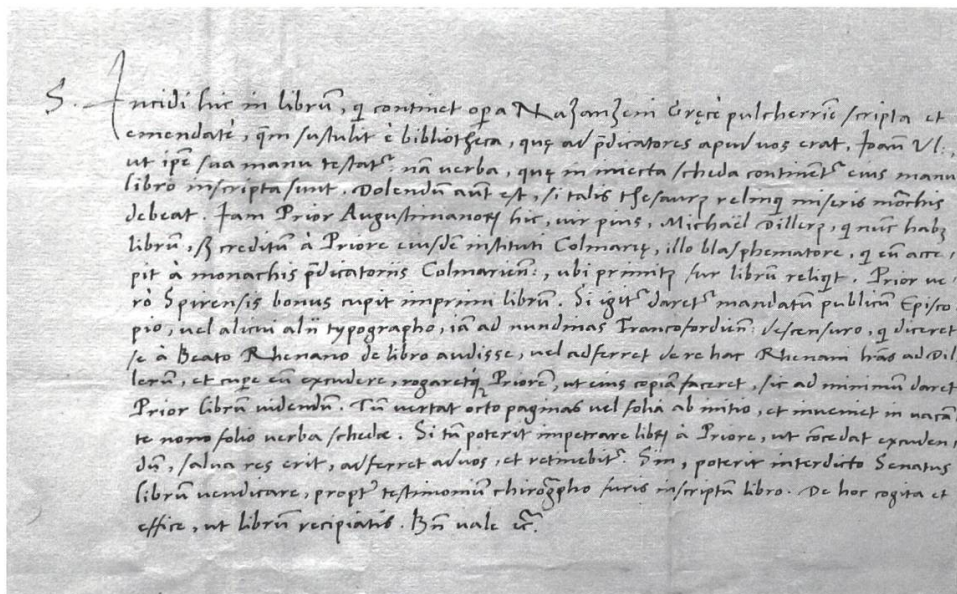 S. Incidi hic in librū, q̃ continet opa Nazanzeni Gręcè pulcherrie scripta et
emendatè, q̃m sustulit è bibliotheca, quę ad p̃dicatores apud vos erat, Joañ Ul:,
ut ipe sua manu testatr: nā verba, quę in iniecta scheda continetr eius manu
libro inscripta sunt. Dolendū aūt est, si talis thesaurꝰ relinqi miseris mõchis
debeat. Iam Prior Augustinianorꝝ hic, uir pius, Michaël Dillerꝰ, q̃ nunc habꝫ
librū, sꝫ creditū à Priore eiusdē instituti Colmarię, illo blasphematore, q̃ eū acce,
pit à monachis p̃dicatoriis Colmarien̄:, ubi primitꝰ fur librū reliq̃t. Prior ve,
rò Spirensis bonus cupit imprimi librū. Si igitr daretr mandatū publicū Episco
pio, vel alicui alii typographo, iā ad nundinas Francofordien̄: descensuro, q̃ diceret
se à Beato Rhenano de libro audisse, vel adferret de re hac Rhenani lr̃as ad Dil,
lerū, et cupe eū excudere, rogaretqꝫ Priorē, ut eius copiā faceret, sic ad minimū daret
Prior librū uidendū. Tū vertat octo paginas vel folia ab initio, et inveniet in vacā
te nono folio verba schedæ. Si tū poterit impetrare librū à Priore, ut cõcedat excuden,
dū, salva res erit, adferret ad vos, et retinebitr. Sin, poterit interdicto Senatus
librū vendicare, proptr testimoniū chirogr̃pho furis inscriptū libro. De hoc cogita et
effice, ut librū recipiatis. Bñ vale ec̃.